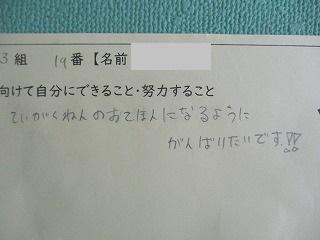 3組 19番【名前
向けて自分にできること・努力すること
ていがくねんのおてほんになるように
がんばりたいです!!